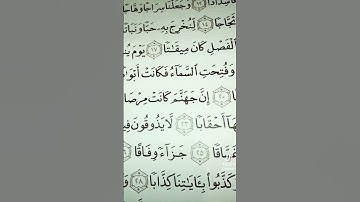 شِدَادًا ١٢ وَجَعَلْنَا سِرَاجًا وَهَّاجًا
ثَجَّاجًا ١٤ لِّنُخْرِجَ بِهِۦ حَبًّا وَنَبَاتًا
ٱلْفَصْلِ كَانَ مِيقَٰتًا ١٧ يَوْمَ
وَفُتِحَتِ ٱلسَّمَآءُ فَكَانَتْ أَبْوَٰ
٢٠ إِنَّ جَهَنَّمَ كَانَتْ مِرْصَا
هَآ أَحْقَابًا ٢٣ لَّا يَذُوقُونَ فِي
اقًا ٢٥ جَزَآءً وِفَاقًا
وَكَذَّبُوا۟ بِـَٔايَٰتِنَا كِذَّابًا ٢٨ وَ